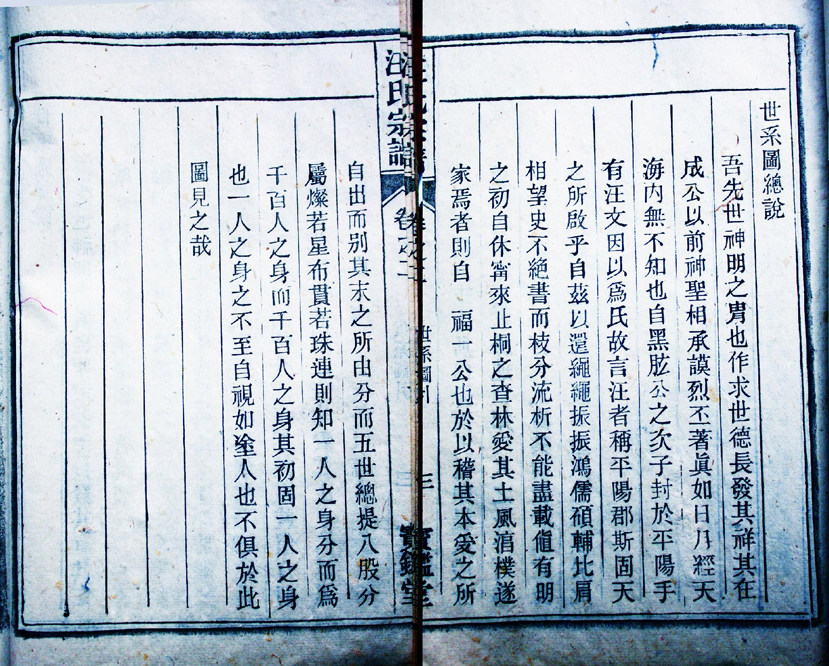 世系圖總說
吾先世神明之胄也作求世德長發其祥其在
成公以前神聖相承謨烈丕著眞如日月經天
海內無不知也自黑肱公之次子封於平陽手
有汪文因以爲氏故言汪者稱平陽郡斯固天
之所啟乎自茲以還繩繩振振鴻儒碩輔比肩
相望史不絕書而枝分流析不能盡載値有明
之初自休甯來止桐之查林愛其土風湻樸遂
家焉者則自 福一公也於以稽其本爰之所
汪氏宗譜 卷之二 世系圖引 三 寶鑑堂
自出而別其末之所由分而五世總提八股分
屬燦若星布貫若珠連則知一人之身分而爲
千百人之身而千百人之身其初固一人之身
也一人之身之不至自視如塗人也不俱於此
圖見之哉